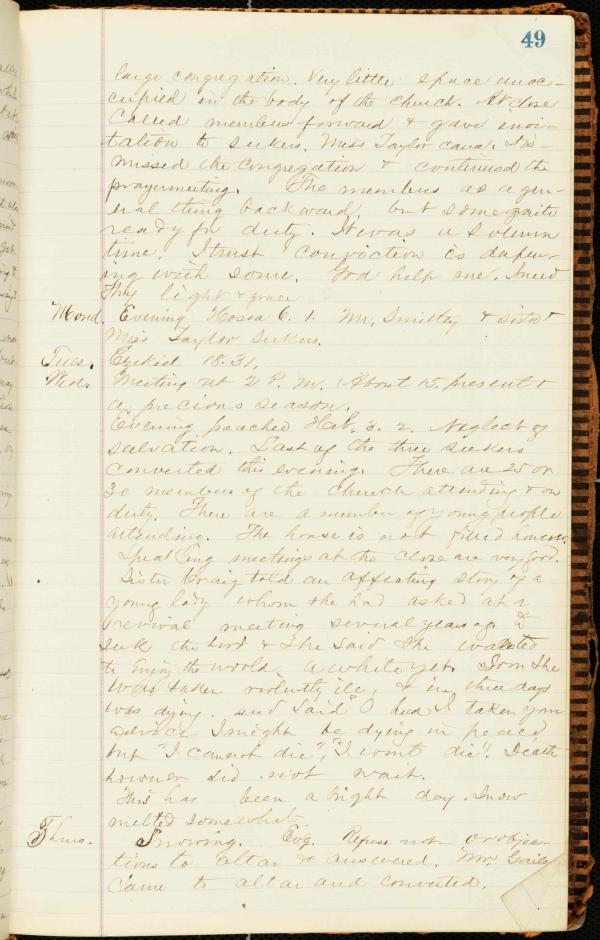 49
large congregation. Very little space unoc-
cupied in the body of the church. At close
Called members forward & gave invi-
tation to seekers. Miss Taylor came. Dis-
missed the Congregation & continued the
prayermeeting. The members as a gen-
eral thing backward, but some quite
ready for duty. It was a solemn
time. I trust conviction is deepen-
ing with some. God help me. I need
Thy light & grace
Mond. Evening Hosea 6. 1. Mr. Smitley & sister &
Miss Taylor seekers.
Tues. Ezekiel 18.31.
Wed. Meeting at 2 P. M. About 15 present &
a precious season.
Evening preached Heb. 3. 2. Neglect of
salvation. Last of the three seekers
converted this evening. There are 25 or
30 members of the church attending & on
duty. There are a number of young people
attending. The house is not filled however.
Speaking meetings at the close are very good.
Sister Craig told an affecting story of a
young lady whom she had asked at a
revival meeting several years ago to
seek the Lord & she said she wanted
to Enjoy the world a while yet. Soon she
was taken violently ill, & in three days
was dying. and said "O had I taken your
advice I might be dying in peace
but "I cannot die", "I won't die". Death
however did not wait.
This has been a bright day. Snow
melted somewhat
Thurs. Snowing. Evg. Refuse not or objec-
tions to altar &c answered. Mr.
Came to altar and converted.